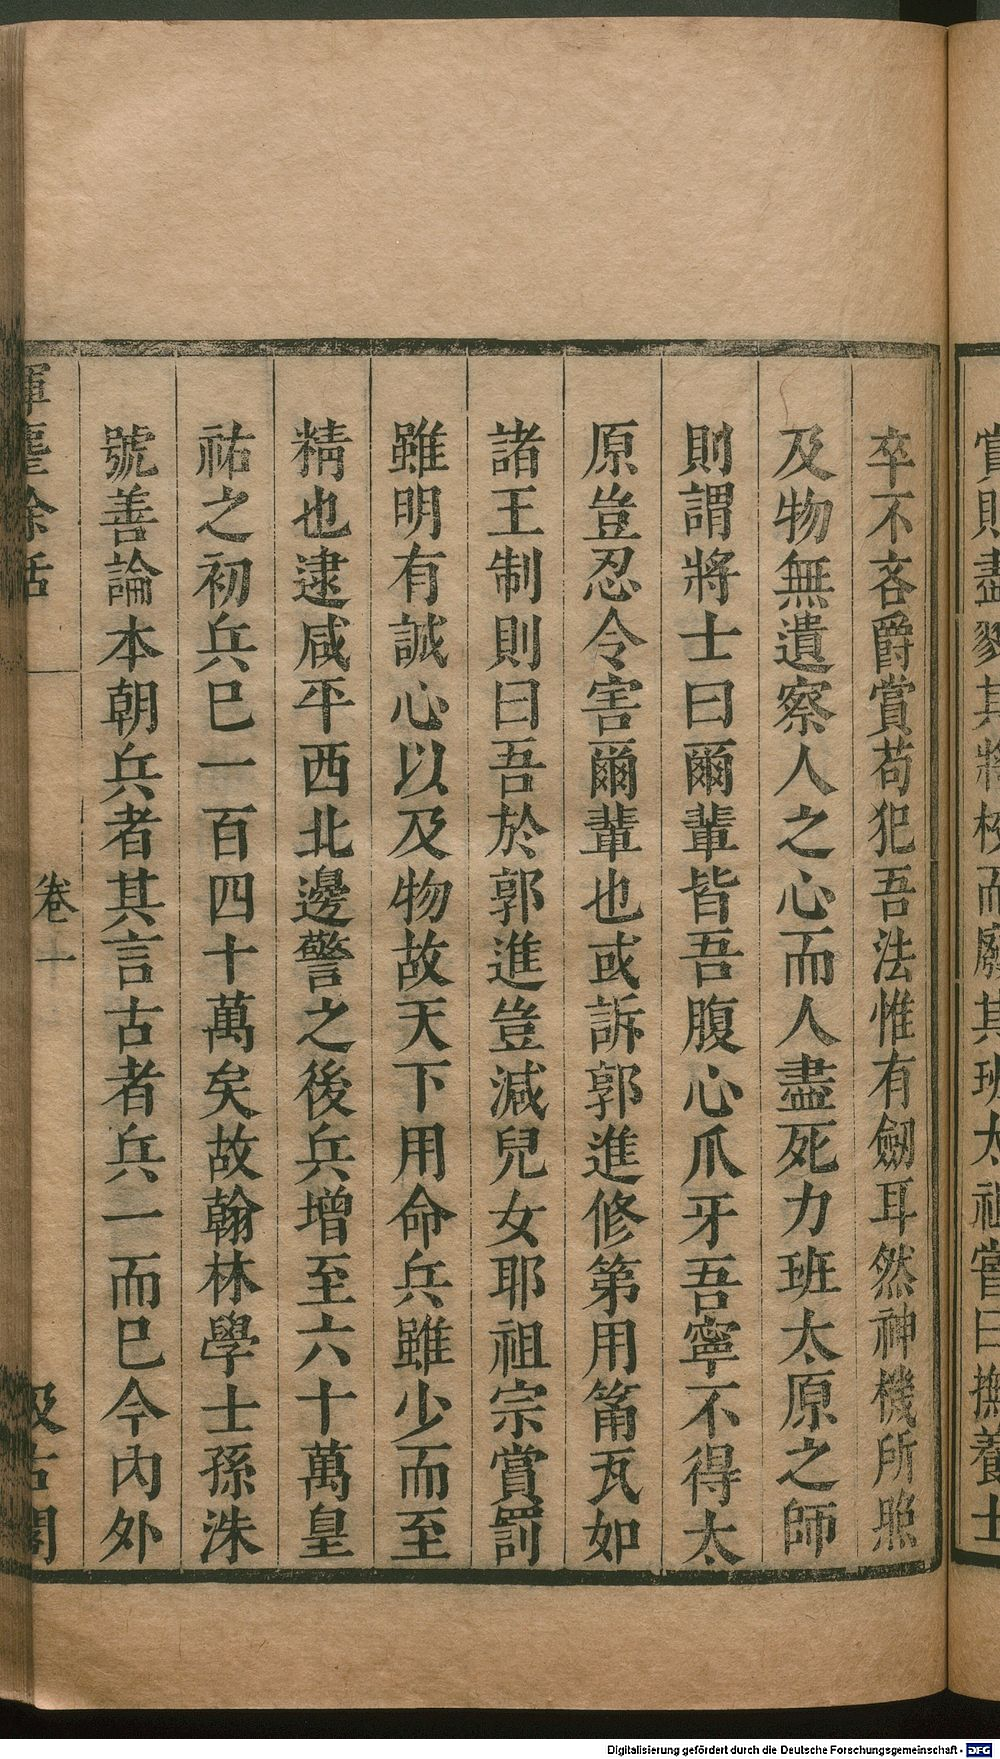 賞則盡貌其將校而廢其班太祖嘗曰撫養士
卒不吝爵賞苟犯吾法惟有劒耳然神機所照
及物無遺察人之心而人盡死力班太原之師
則謂將士曰爾輩皆吾腹心爪牙吾寧不得太
原豈忍令害爾輩也或訴郭進修第用筩瓦如
諸王制則曰吾於郭進豈減兒女耶祖宗賞罰
雖明有誠心以及物故天下用命兵雖少而至
精也逮咸平西北邊警之後兵增至六十萬皇
祐之初兵已一百四十萬矣故翰林學士孫洙
號善論本朝兵者其言古者兵一而已今內外
揮麈餘話 卷一 汲古閣
Digitalisierung gefördert durch die Deutsche Forschungsgemeinschaft - DFG